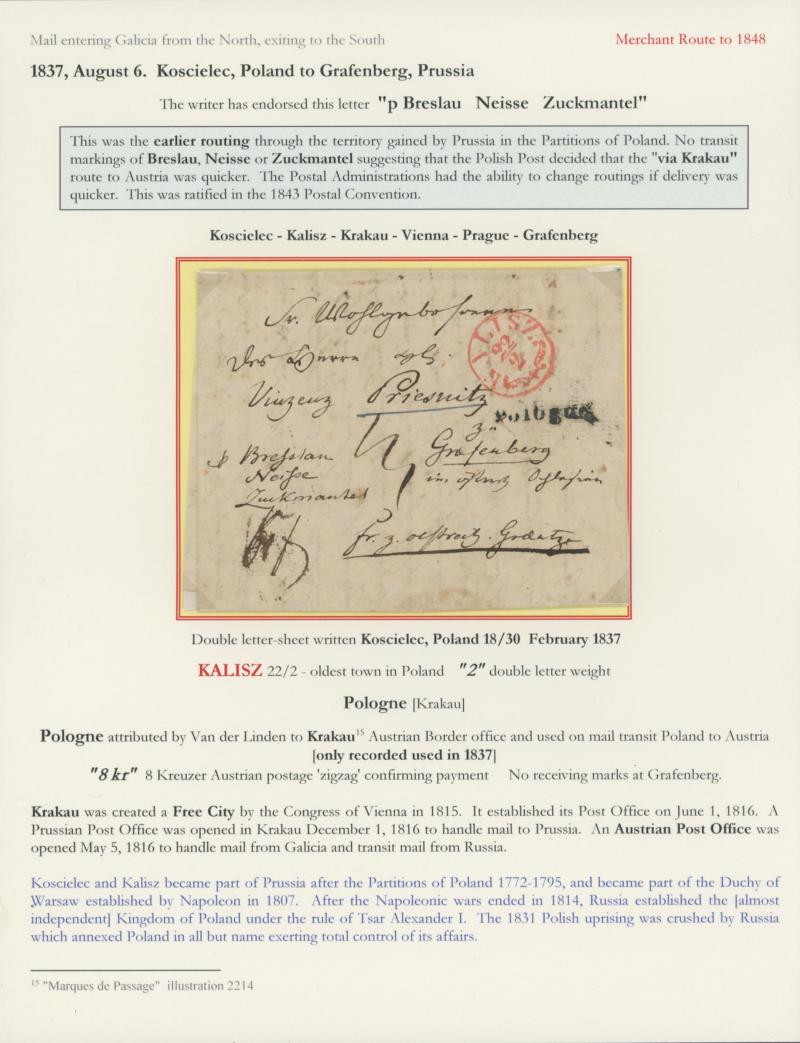 Mail entering Galicia from the North, exiting to the South
Merchant Route to 1848
1837, August 6. Koscielec, Poland to Grafenberg, Prussia
The writer has endorsed this letter "p Breslau Neisse Zuckmantel"
This was the earlier routing through the territory gained by Prussia in the Partitions of Poland. No transit
markings of Breslau, Neisse or Zuckmantel suggesting that the Polish Post decided that the "via Krakau"
route to Austria was quicker. The Postal Administrations had the ability to change routings if delivery was
quicker. This was ratified in the 1843 Postal Convention.
Koscielec - Kalisz - Krakau - Vienna - Prague - Grafenberg
Sr. Wohlgeboren
des Herrn
KALISZ
Vinzenz Priesnitz
Pologne
zu
p Breslau Grafenberg
Neisse
Zuckmantel
Double letter-sheet written Koscielec, Poland 18/30 February 1837
KALISZ 22/2 - oldest town in Poland "2" double letter weight
Pologne [Krakau]
Pologne attributed by Van der Linden to Krakau15 Austrian Border office and used on mail transit Poland to Austria
[only recorded used in 1837]
"8 kr" 8 Kreuzer Austrian postage 'zigzag' confirming payment No receiving marks at Grafenberg.
Krakau was created a Free City by the Congress of Vienna in 1815. It established its Post Office on June 1, 1816. A
Prussian Post Office was opened in Krakau December 1, 1816 to handle mail to Prussia. An Austrian Post Office was
opened May 5, 1816 to handle mail from Galicia and transit mail from Russia.
Koscielec and Kalisz became part of Prussia after the Partitions of Poland 1772-1795, and became part of the Duchy of
Warsaw established by Napoleon in 1807. After the Napoleonic wars ended in 1814, Russia established the [almost
independent] Kingdom of Poland under the rule of Tsar Alexander I. The 1831 Polish uprising was crushed by Russia
which annexed Poland in all but name exerting total control of its affairs.
15 "Marques de Passage" illustration 2214